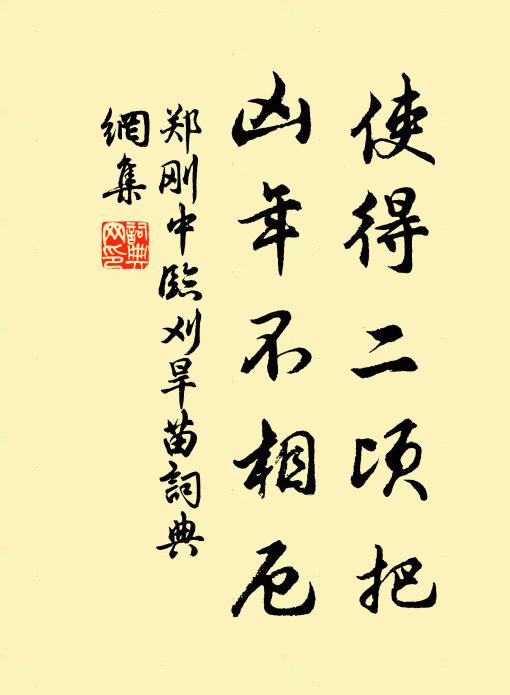 使得二顷把
凶年不相厄
郑刚中臨刈旱苗詞典
網集
詞典
网印